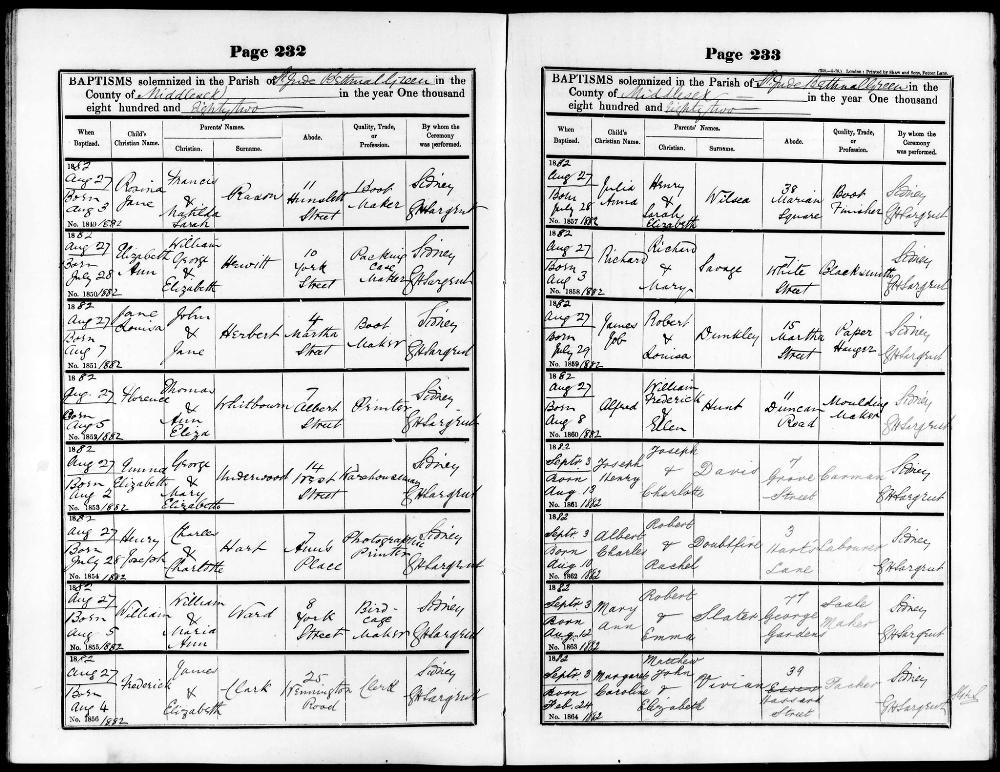 Page 232
BAPTISMS solemnized in the Parish of St Jude Bethnal Green in the
County of Middlesex in the year One thousand
eight hundred and Eighty two
When Baptized. Child's Christian Name. Parents' Names. Christian. Surname. Abode. Quality, Trade, or Profession. By whom the Ceremony was performed.
1882
Aug 27 Rosina Francis 11 Boot Sidney
Born Jane & Raxon Hunslett Maker
Aug 3 Matilda Street G H Sargent
No. 1849/1882 Sarah
1882
Aug 27 Elizabeth William 10 Packing Sidney
Born Ann George Hewitt York Case
July 28 & Street Maker G H Sargent
No. 1850/1882 Elizabeth
1882
Aug 27 Jane John 4 Boot Sidney
Born Louisa & Herbert Martha Maker
Aug 7 Jane Street G H Sargent
No. 1851/1882
1882
Aug 27 Florence Thomas 7 Sidney
Born & Whitbourn Albert Printer
Aug 5 Ann Street G H Sargent
No. 1852/1882 Eliza
1882
Aug 27 Emma George 14 Sidney
Born Elizabeth & Underwood West Warehouseman
Aug 2 Mary Street G H Sargent
No. 1853/1882 Elizabeth
1882
Aug 27 Henry Charles 7 Photographic Sidney
Born Joseph & Hart Ann's Printer
July 28 Charlotte Place G H Sargent
No. 1854/1882
1882
Aug 27 William William 8 Bird- Sidney
Born & Ward York cage
Aug 5 Maria Street Maker G H Sargent
No. 1855/1882 Ann
1882
Aug 27 Frederick James 25 Sidney
Born & Clark Wennington Clerk
Aug 4 Elizabeth Road G H Sargent
No. 1856/1882
Page 233
London: Printed by Shaw and Sons, Fetter Lane.
BAPTISMS solemnized in the Parish of St Jude Bethnal Green in the
County of Middlesex in the year One thousand
eight hundred and Eighty two
When Baptized. Child's Christian Name. Parents' Names. Christian. Surname. Abode. Quality, Trade, or Profession. By whom the Ceremony was performed.
1882
Aug 27 Julia Henry 38 Boot Sidney
Born Anna & Wilsea Marian Finisher
July 28 Sarah Square G H Sargent
No. 1857/1882 Elizabeth
1882
Aug 27 Richard Richard 7 Sidney
Born & Savage White Blacksmith
Aug 3 Mary Street G H Sargent
No. 1858/1882
1882
Aug 27 James Robert 15 Paper Sidney
Born Job & Dunkley Martha Hanger
July 29 Louisa Street G H Sargent
No. 1859/1882
1882
Aug 27 Alfred William 11 Moulding Sidney
Born Frederick Hunt Duncan Maker
Aug 8 & Road G H Sargent
No. 1860/1882 Ellen
1882
Septr 3 Joseph Joseph 7 Sidney
Born Henry & Davis Grove Carman
Aug 13 Charlotte Street G H Sargent
No. 1861/1882
1882
Septr 3 Albert Robert 3 Sidney
Born Charles & Doubtfire Hart's Labourer
Aug 10 Rachel Lane G H Sargent
No. 1862/1882
1882
Septr 3 Mary Robert 77 Sidney
Born Ann & Slater George Maker
Aug 12 Emma Gardens G H Sargent
No. 1863/1882
1882
Septr 3 Margaret Matthew 39 Sidney
Born Caroline John Vivian Hassard Packer
Feb. 24 & Street G H Sargent
No. 1864/1882 Elizabeth